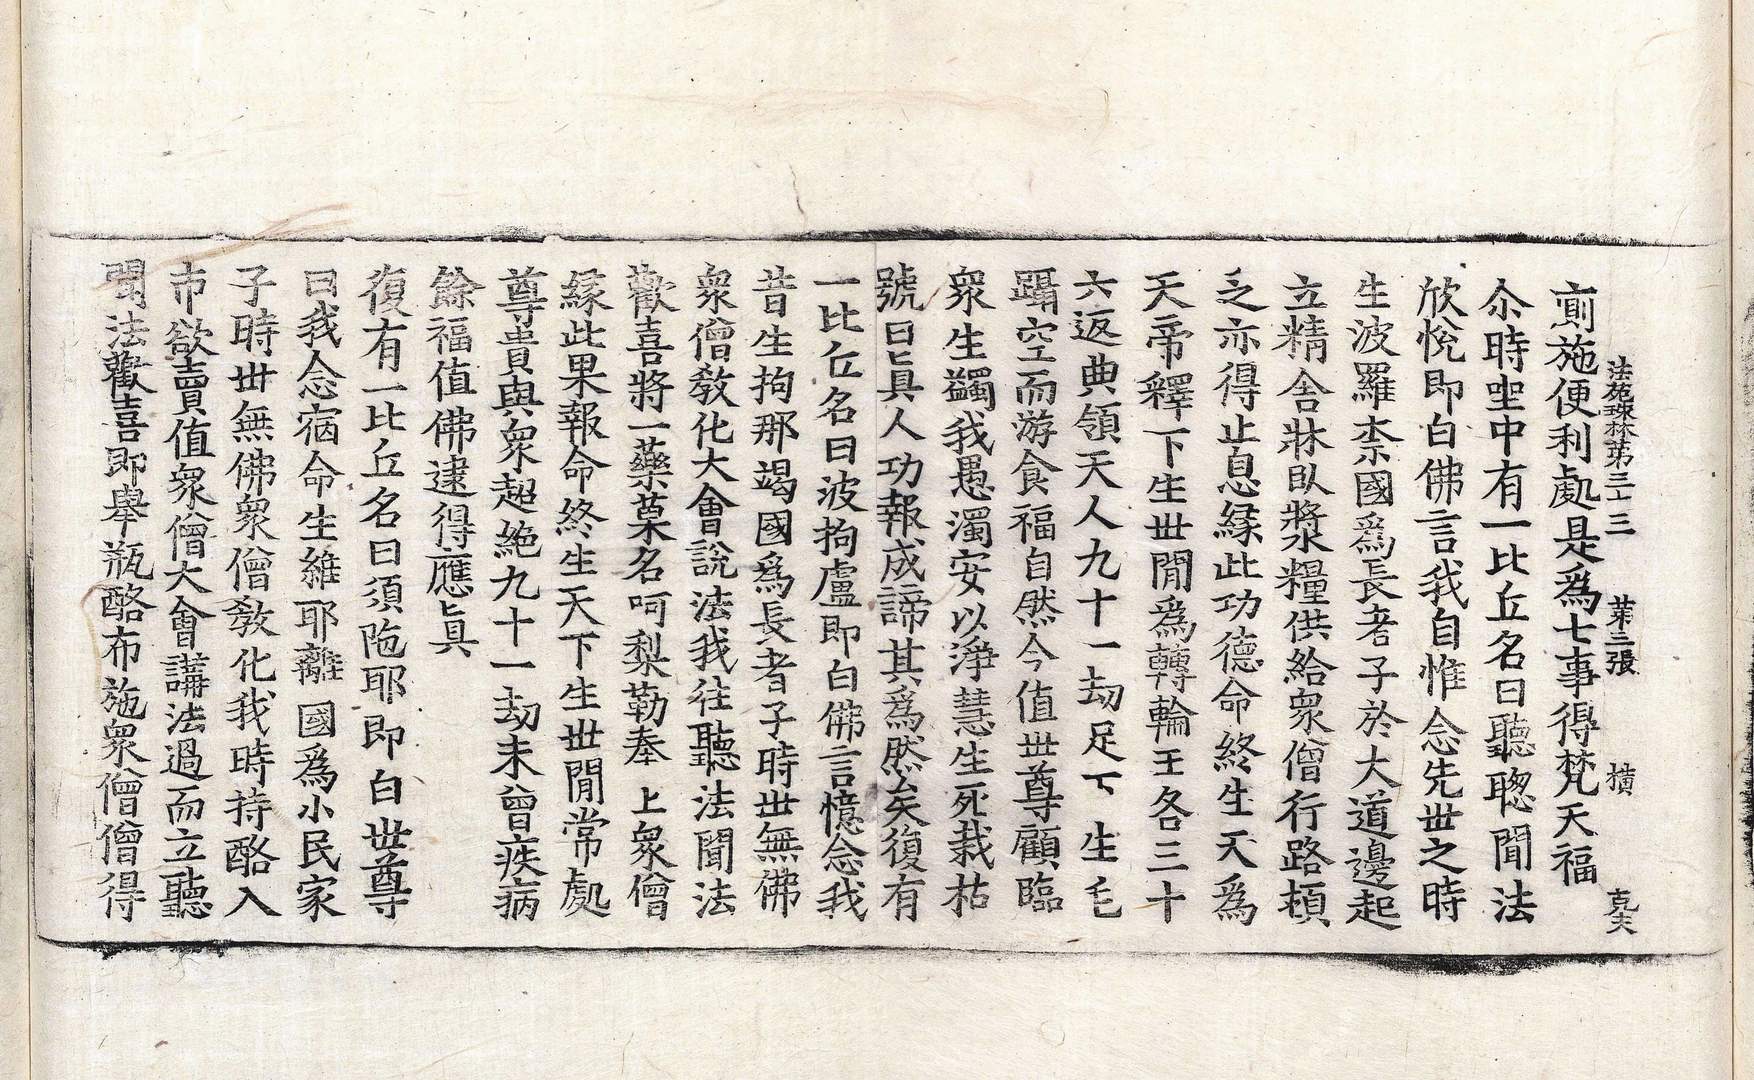 法苑珠林第三十三 第三張 橫 克夫
廁施便利處是爲七事得梵天福
尒時坐中有一比丘名曰聽聰聞法
欣悅即白佛言我自惟念先世之時
生波羅柰國爲長者子於大道邊起
立精舍牀臥漿糧供給衆僧行路頓
乏亦得止息緣此功德命終生天爲
天帝釋下生世閒爲轉輪王各三十
六返典領天人九十一劫足下生毛
躡空而游食福自然今值世尊顧臨
衆生蠲我愚濁安以淨慧生死栽枯
號曰眞人功報成諦其爲然矣復有
一比丘名曰波拘盧即白佛言憶念我
昔生拘那竭國爲長者子時世無佛
衆僧敎化大會說法我往聽法聞法
歡喜將一藥菓名呵梨勒奉上衆僧
緣此果報命終生天下生世閒常處
尊貴與衆超絕九十一劫未曾疾病
餘福值佛逮得應眞
復有一比丘名曰須陁耶即白世尊
曰我念宿命生維耶離國爲小民家
子時世無佛衆僧敎化我時持酪入
市欲賣值衆僧大會講法過而立聽
聞法歡喜即舉瓶酪布施衆僧僧得